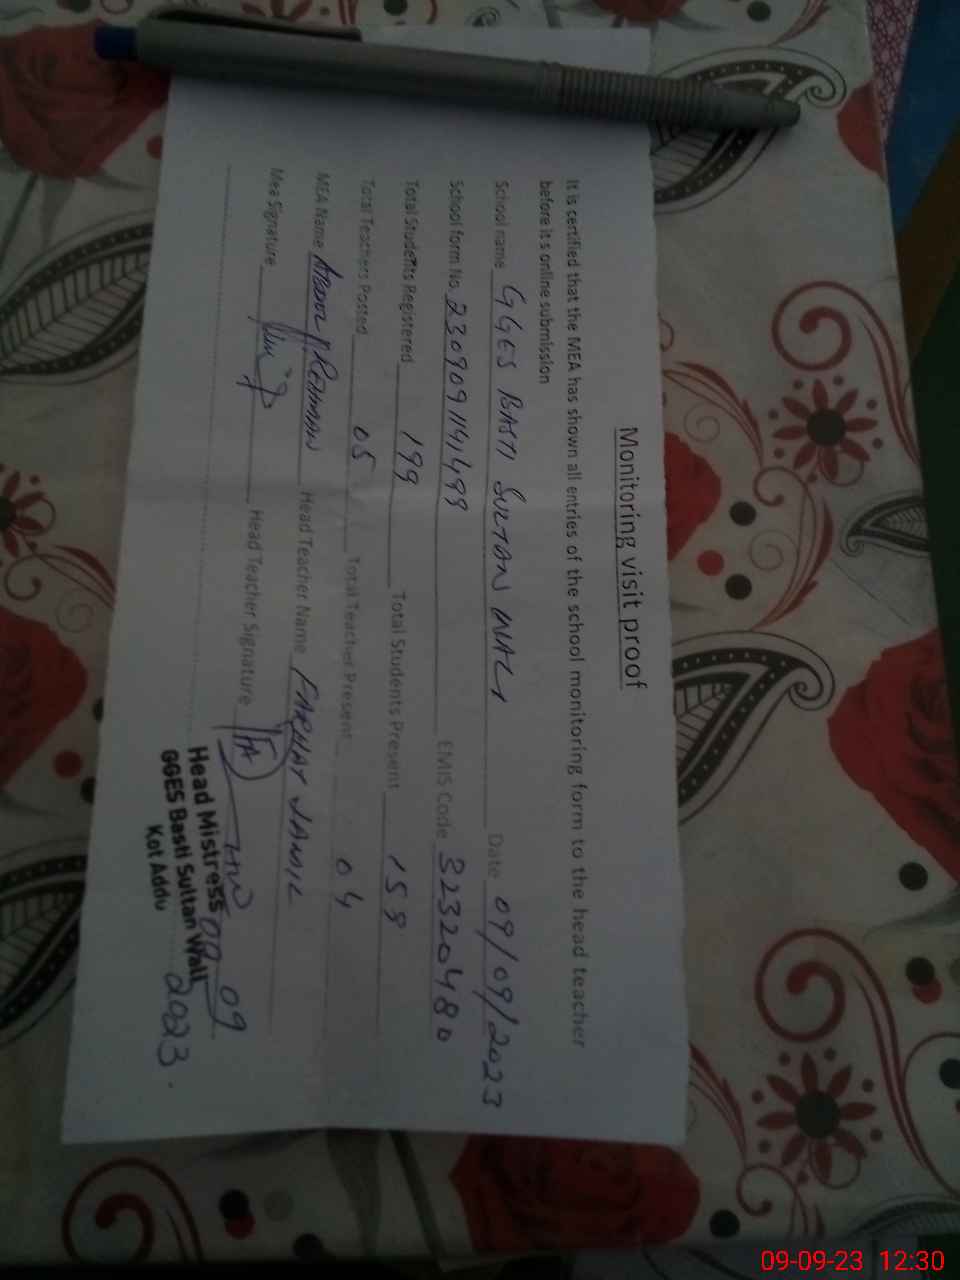 Monitoring visit proof
It is certified that the MEA has shown all entries of the school monitoring form to the head teacher
before it s online submission
School name GGES BASTI SULTAN WALI Date 09/09/2023
School form No. EMIS Code 32320480
Total Students Registered 199 Total Students Present 158
Total Teachers Posted 05 Total Teacher Present 04
MEA Name ABDUL REHMAN Head Teacher Name FARHAT JAMIL
Mea Signature Head Teacher Signature
Head Mistress
GGES Basti Sultan Wali
Kot Addu
09 09
2023.
09-09-23 12:30